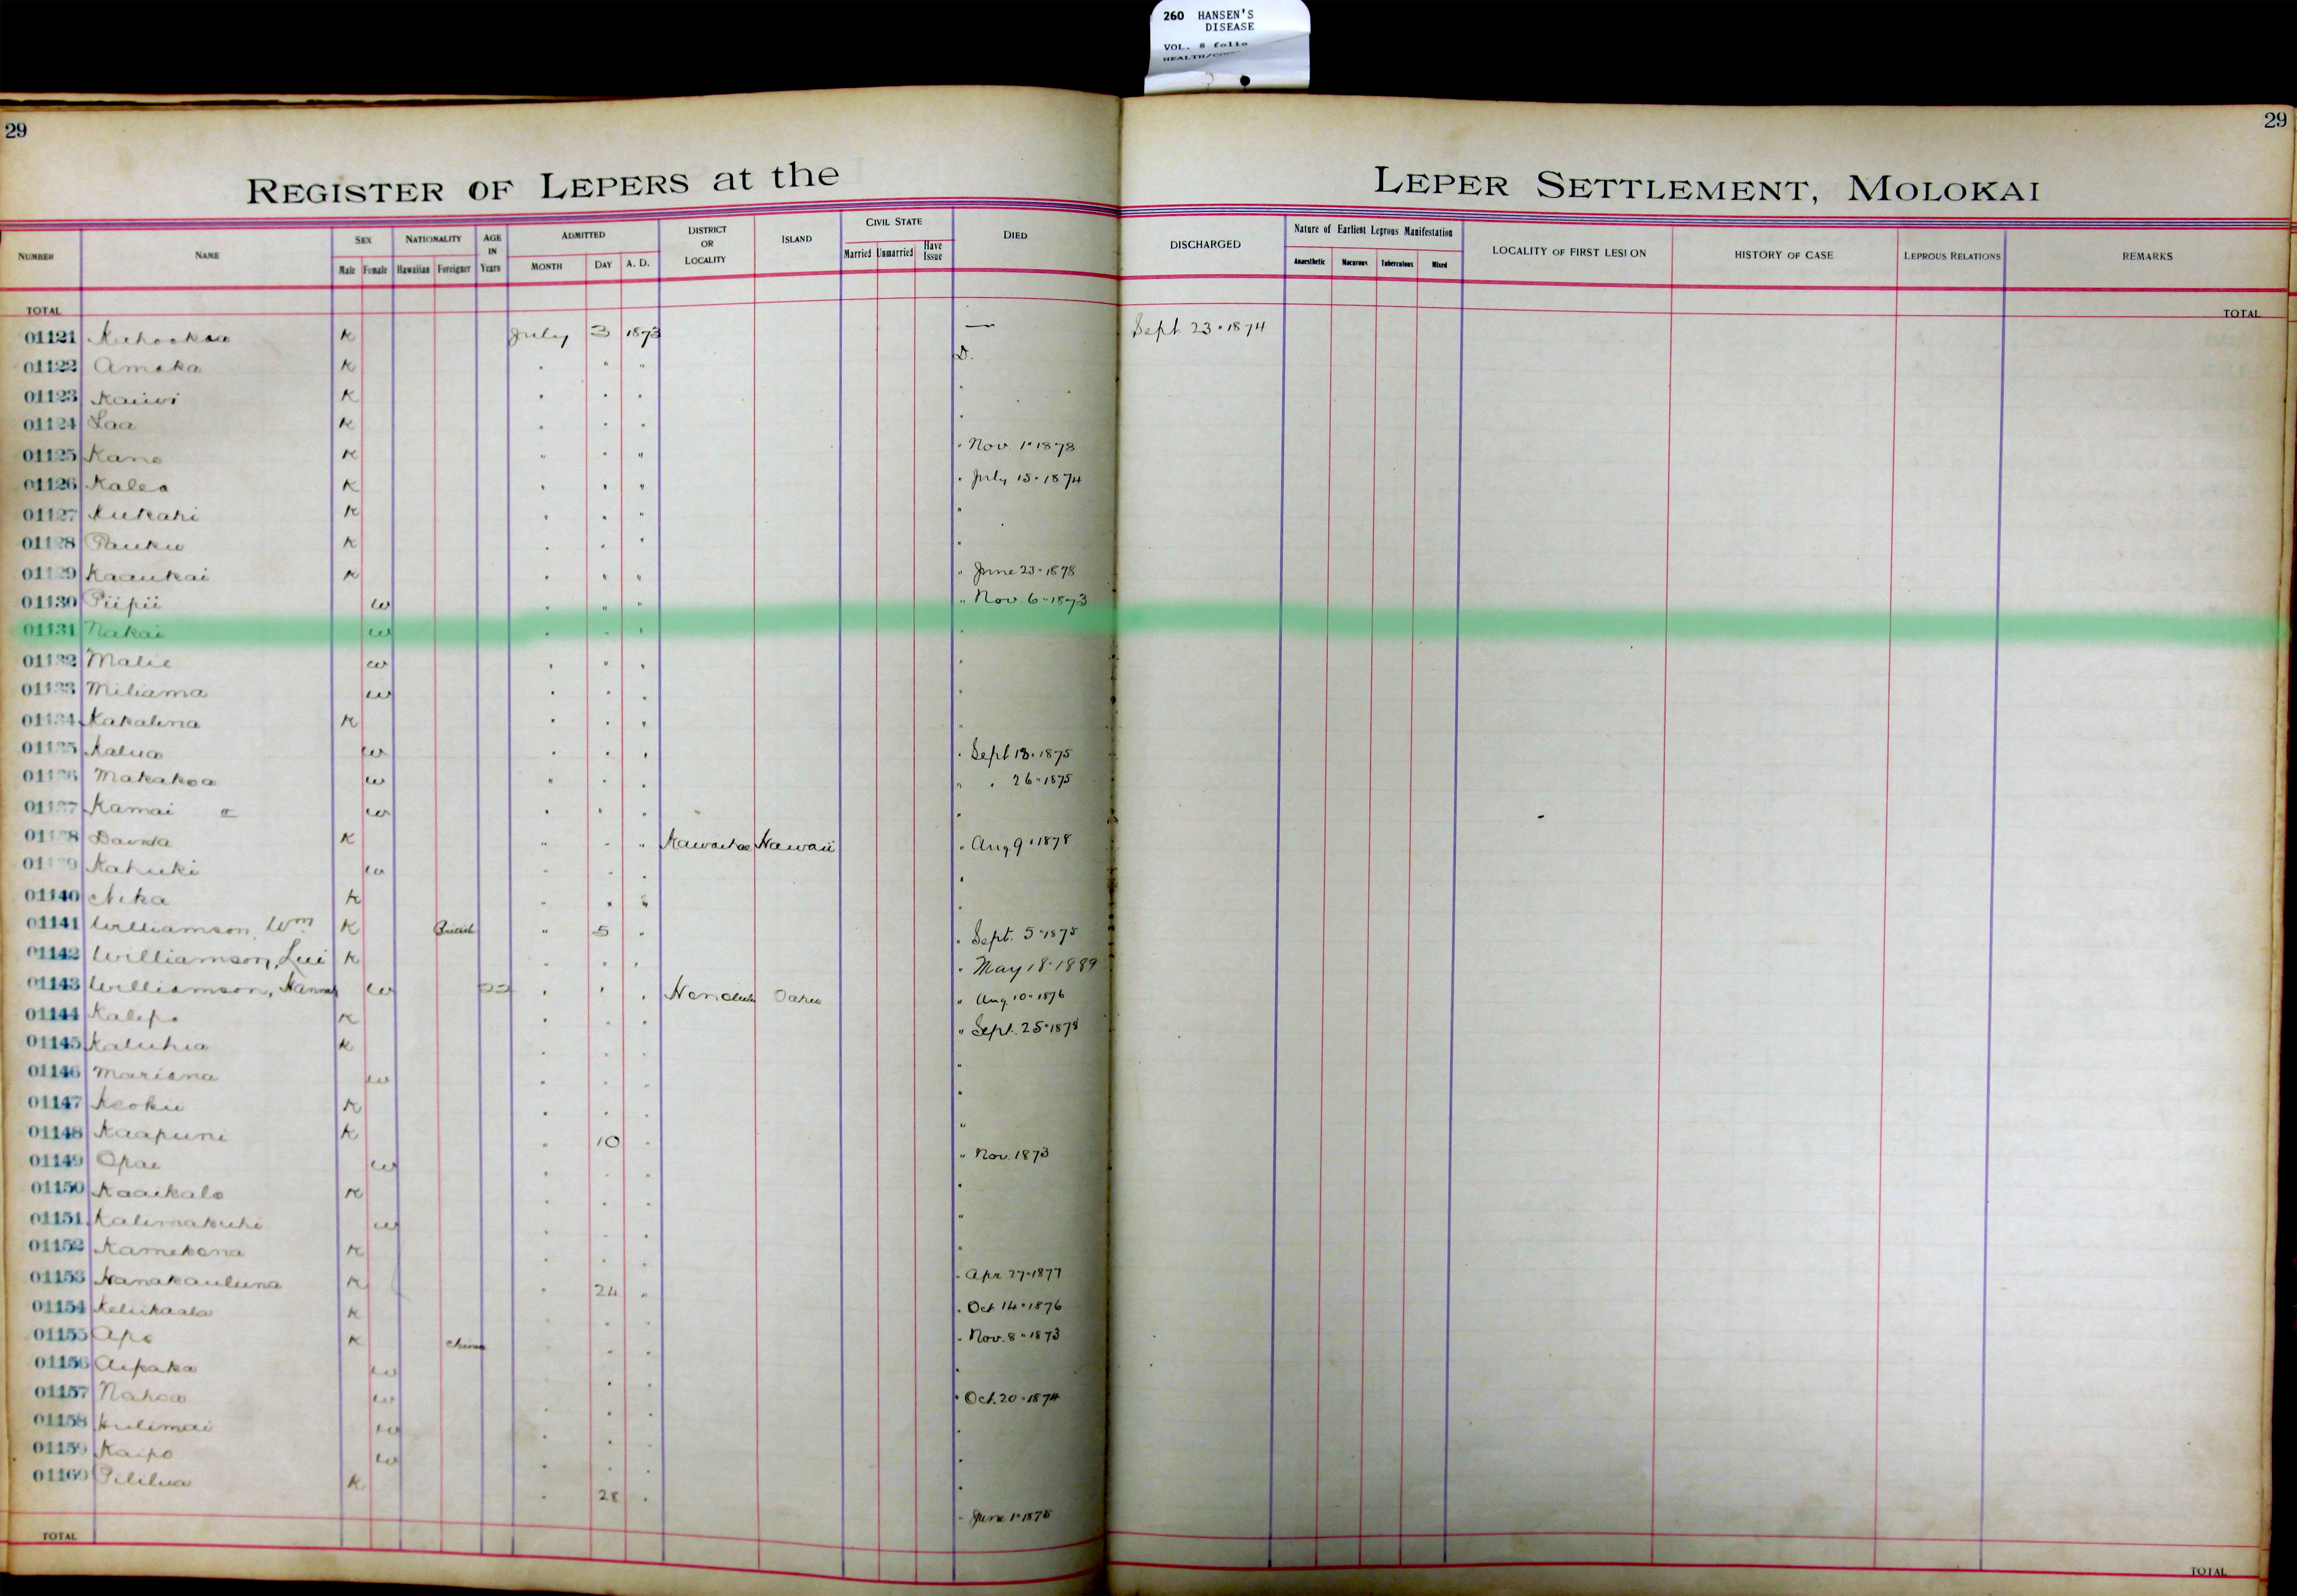 260 HANSEN'S
DISEASE
VOL. 8 folio
29
29
REGISTER OF LEPERS at the LEPER SETTLEMENT, MOLOKAI
NUMBER NAME SEX NATIONALITY AGE IN Years ADMITTED DISTRICT OR LOCALITY ISLAND CIVIL STATE DIED DISCHARGED Nature of Earliest Leprous Manifestation LOCALITY OF FIRST LESION HISTORY OF CASE LEPROUS RELATIONS REMARKS
Male Female Hawaiian Foreigner MONTH DAY A. D. Married Unmarried Have Issue Anaesthetic Macurous Tuberculous Mixed
TOTAL TOTAL
01121 K July 3 1873 — Sept 23 · 1874
01122 Amaka K " " " D.
01123 Kaiwi K " " " "
01124 Laa K " " " "
01125 Kane K " " " " Nov. 1 · 1878
01126 Kalea K " " " " July 15 · 1874
01127 Kukahi K " " " "
01128 Pauku K " " " "
01129 Kaaukai K " " " " June 23 · 1878
01130 Piipii w " " " " Nov. 6 · 1873
01131 Nakai w " " " "
01132 Malie w " " " "
01133 Miliama w " " " "
01134 Kakalina K " " " "
01135 Kalua w " " " " Sept 18 · 1875
01136 Makakoa w " " " " " 26 · 1875
01137 Kamai w " " " "
01138 K " " " Kawaihae Hawaii " Aug 9 · 1878
01139 Kahuki w " " " "
01140 Nika K " " " "
01141 Williamson, Wm K British " 5 " " Sept. 5 · 1875
01142 Williamson, Lui K " " " " May 18 · 1889
01143 Williamson, Hannah w " " " Honolulu Oahu " Aug. 10 · 1876
01144 Kalepo K " " " " Sept. 25 · 1878
01145 Kaluhia K " " " "
01146 Mariana w " " " "
01147 Keoku K " " " "
01148 Kaapuni K " 10 " "
01149 Opae w " " " " Nov. 1873
01150 Kaaikalo K " " " "
01151 Kalimakuhi w " " " "
01152 Kamekona K " " " "
01153 Nanakauluna K " 24 " " Apr 27 · 1877
01154 Keliikaala K " " " " Oct 14 · 1876
01155 Apo K China " " " " Nov. 8 · 1873
01156 Aipaka w " " " "
01157 Nahoa w " " " " Oct. 20 · 1874
01158 Hulimai w " " " "
01159 Kaipo w " " " "
01160 Pililua K " 28 " " June 1 · 1875
TOTAL TOTAL